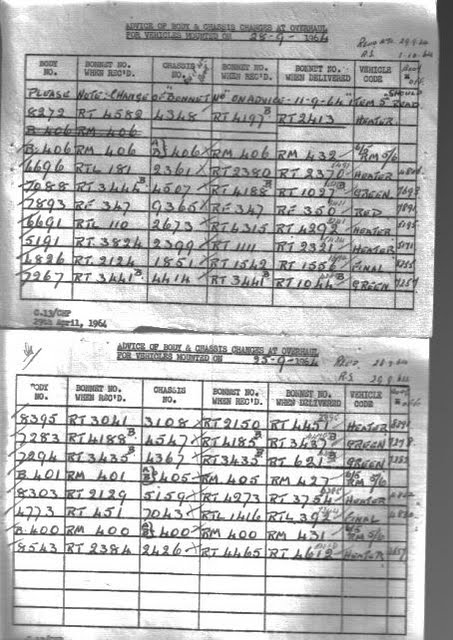 ADVICE OF BODY & CHASSIS CHANGES AT OVERHAUL
FOR VEHICLES MOUNTED ON 28-9-1964
BODY NO. BONNET NO. WHEN REC'D. CHASSIS NO. BONNET NO. WHEN REC'D. BONNET NO. WHEN DELIVERED VEHICLE CODE
PLEASE NOTE: CHANGE OF "BONNET No" ON ADVICE - 11-9-64 ITEM 5 SHOULD READ
8272 RT 4582 4348 RT 4197B RT 2413 HEATER
B 406 RM 406
B.406 RM 406 406 RM 406 RM 432 RM 5/6
6696 RTL 181 2361 RT 2380 RT 2370 HEATER
7088 RT 3444B 4507 RT 4188B RT 1027B GREEN
7893 RF 347 9365 RF 347 RF 350 RED
6691 RTL 110 2673 RT 4315 RT 4292 HEATER
5191 RT 3824 2399 RT 1111 RT 2321 HEATER
6826 RT 2124 1851 RT 1542 RT 1556 FINAL
7267 RT 3441B 4414 RT 3441B RT 1044B GREEN
C.13/CHP
29th April, 1964
ADVICE OF BODY & CHASSIS CHANGES AT OVERHAUL
FOR VEHICLES MOUNTED ON 25-9-1964
BODY NO. BONNET NO. WHEN REC'D. CHASSIS NO. BONNET NO. WHEN REC'D. BONNET NO. WHEN DELIVERED VEHICLE CODE
8395 RT 3041 3108 RT 2150 RT 4451 HEATER
7283 RT 4188B 4547 RT 4185B RT 3437B GREEN
7294 RT 3435B 4367 RT 3435B RT 631B GREEN
B.401 RM 401 405 RM 405 RM 427 RM 5/6
8303 RT 2129 5159 RT 4273 RT 3754 HEATER
4773 RT 451 7043 RTL 1416 RTL 392 FINAL
B.400 RM 400 400 RM 400 RM 431 RM 5/6
8543 RT 2384 2426 RT 4465 RT 4612 HEATER